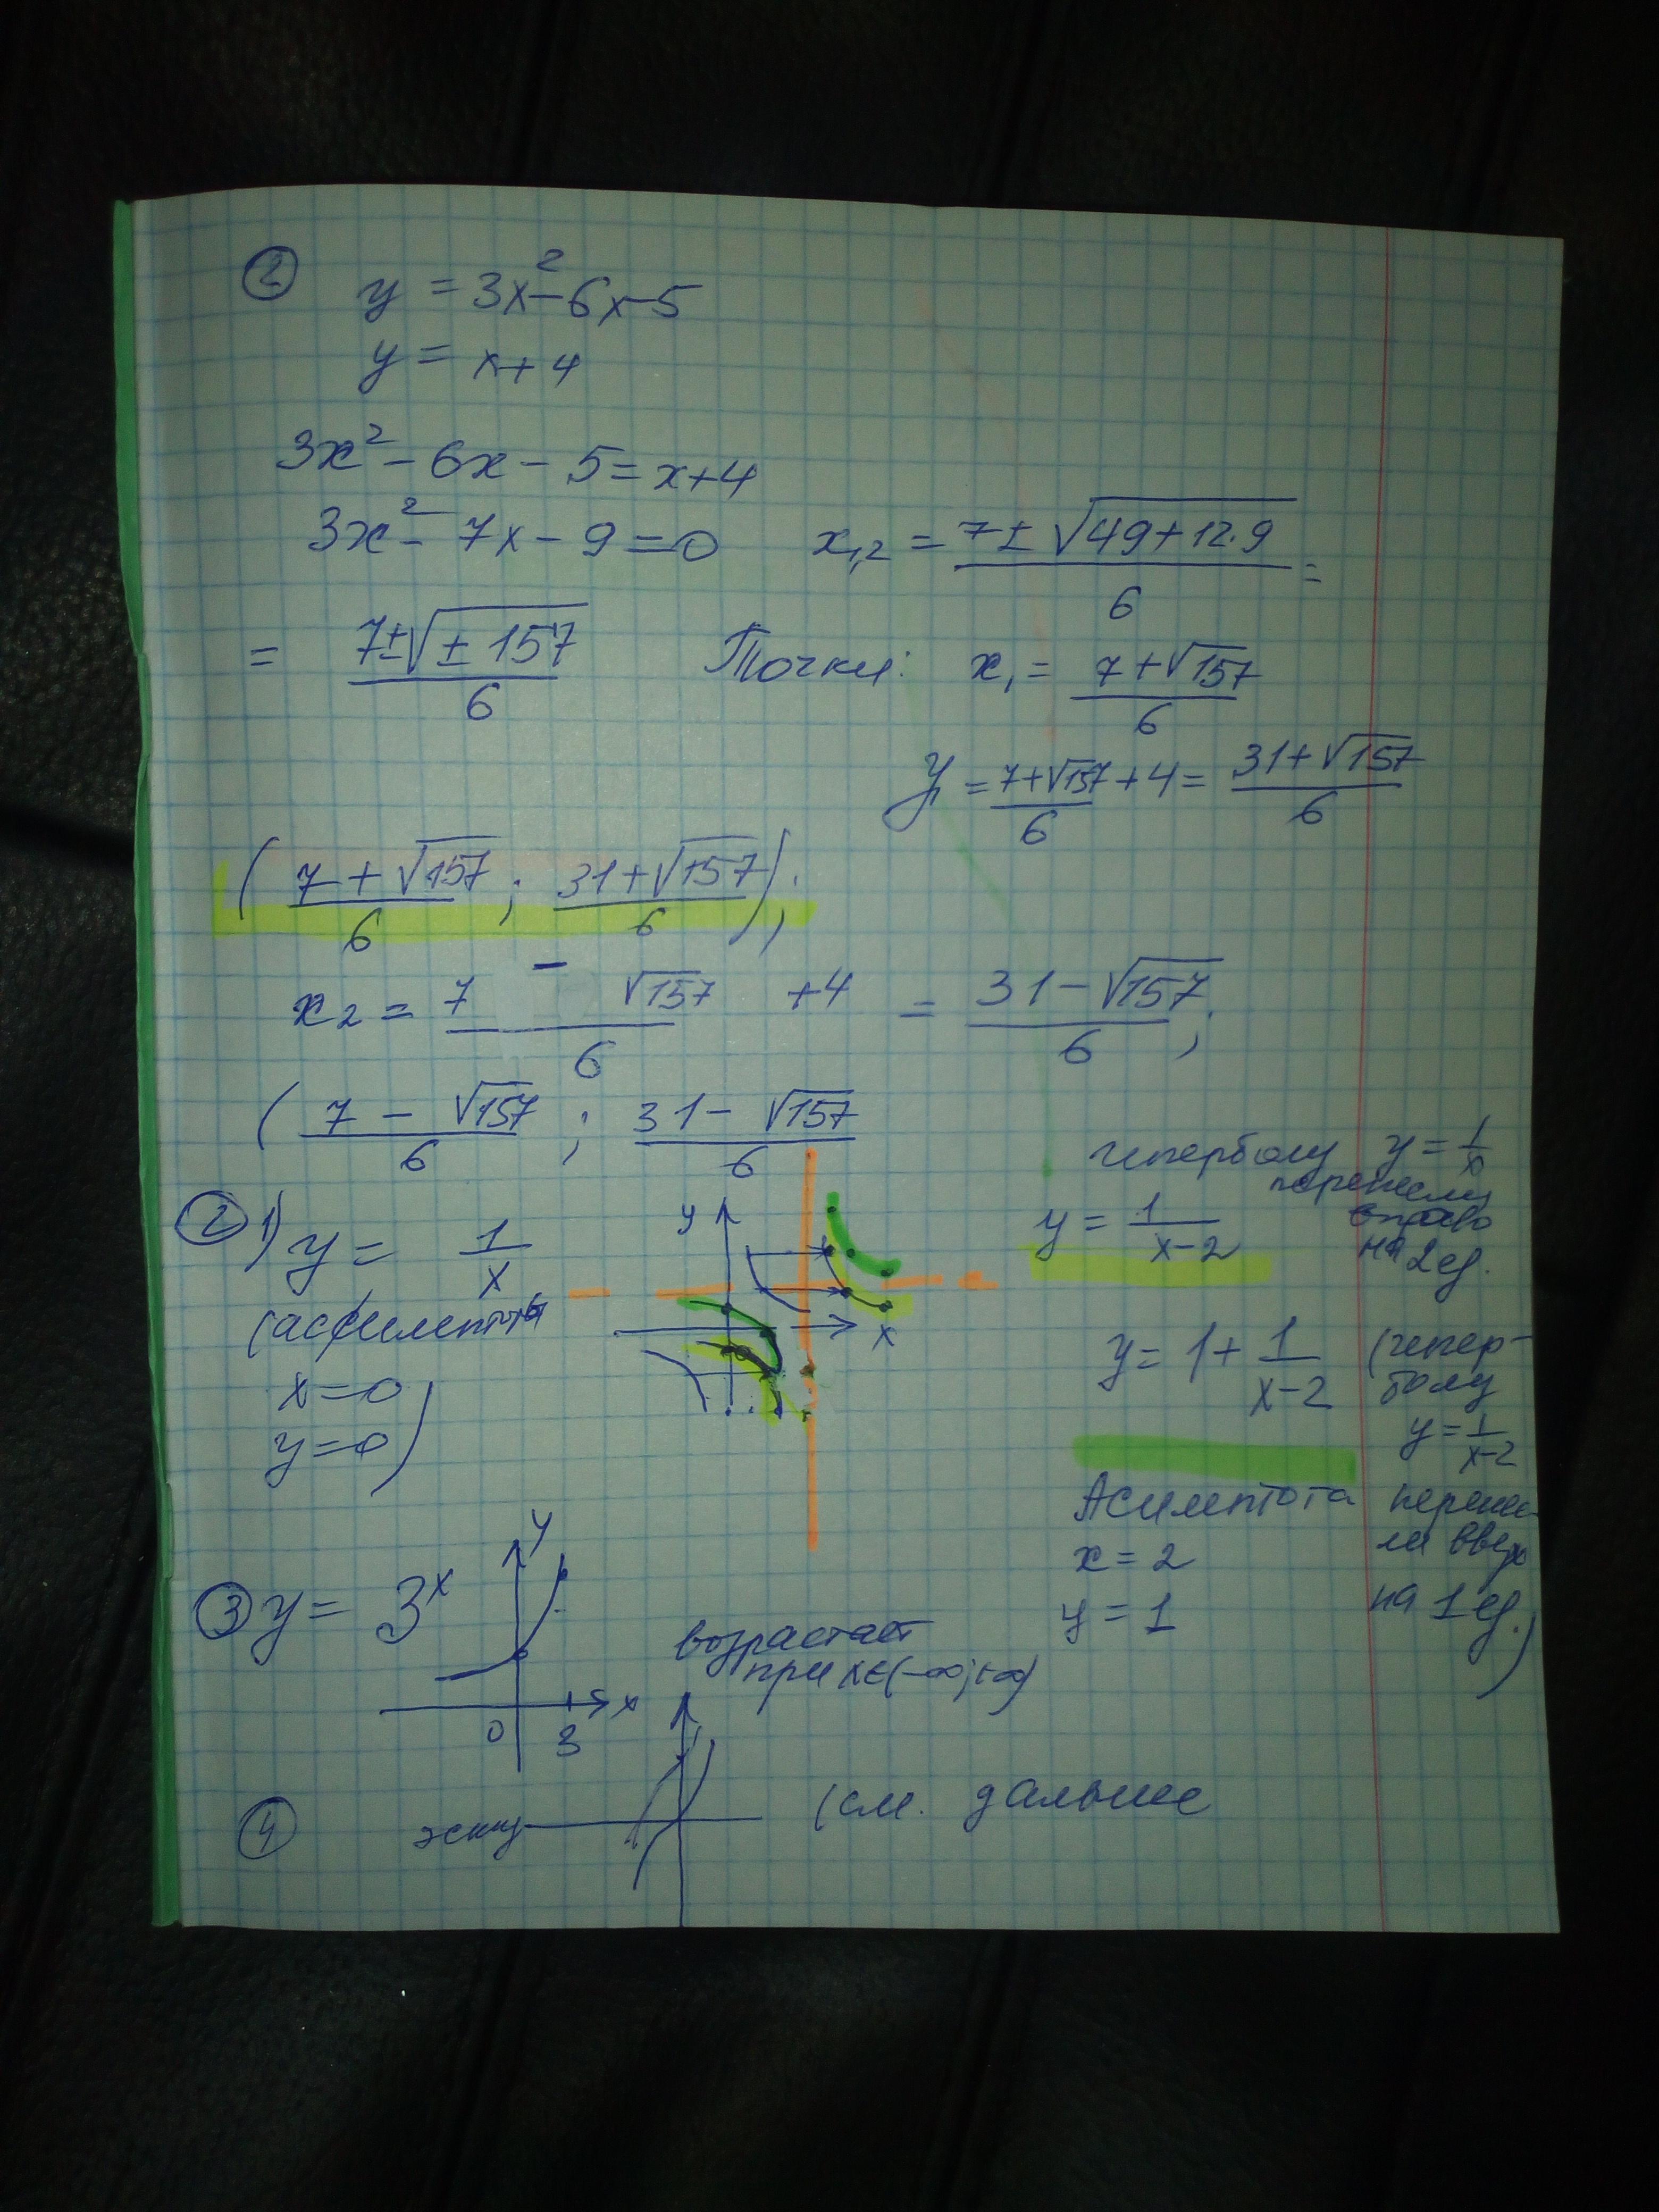 ② y = 3x² - 6x - 5
y = x + 4
3x² - 6x - 5 = x + 4
3x² - 7x - 9 = 0 x₁,₂ = (7 ± √(49 + 12·9))/6 =
= (7 ± √(± 157))/6 Точки: x₁ = (7 + √157)/6
y₁ = (7 + √157)/6 + 4 = (31 + √157)/6
( (7 + √157)/6 ; (31 + √157)/6 );
x₂ = (7 - √157)/6 + 4 = (31 - √157)/6;
( (7 - √157)/6 ; (31 - √157)/6
гиперболу y = 1/x
перенесли
вправо
на 2 ед.
② 1) y = 1/x
(асимптоты
x = 0
y = 0)
y
x
y = 1/(x-2)
y = 1 + 1/(x-2) (гипер-
болу
y = 1/(x-2)
перене-
ли вверх
на 1 ед.)
Асимптота
x = 2
y = 1
③ y = 3ˣ
y
x
0
3
возрастает
при x∈(-∞;+∞)
④ эскиз (см. дальше